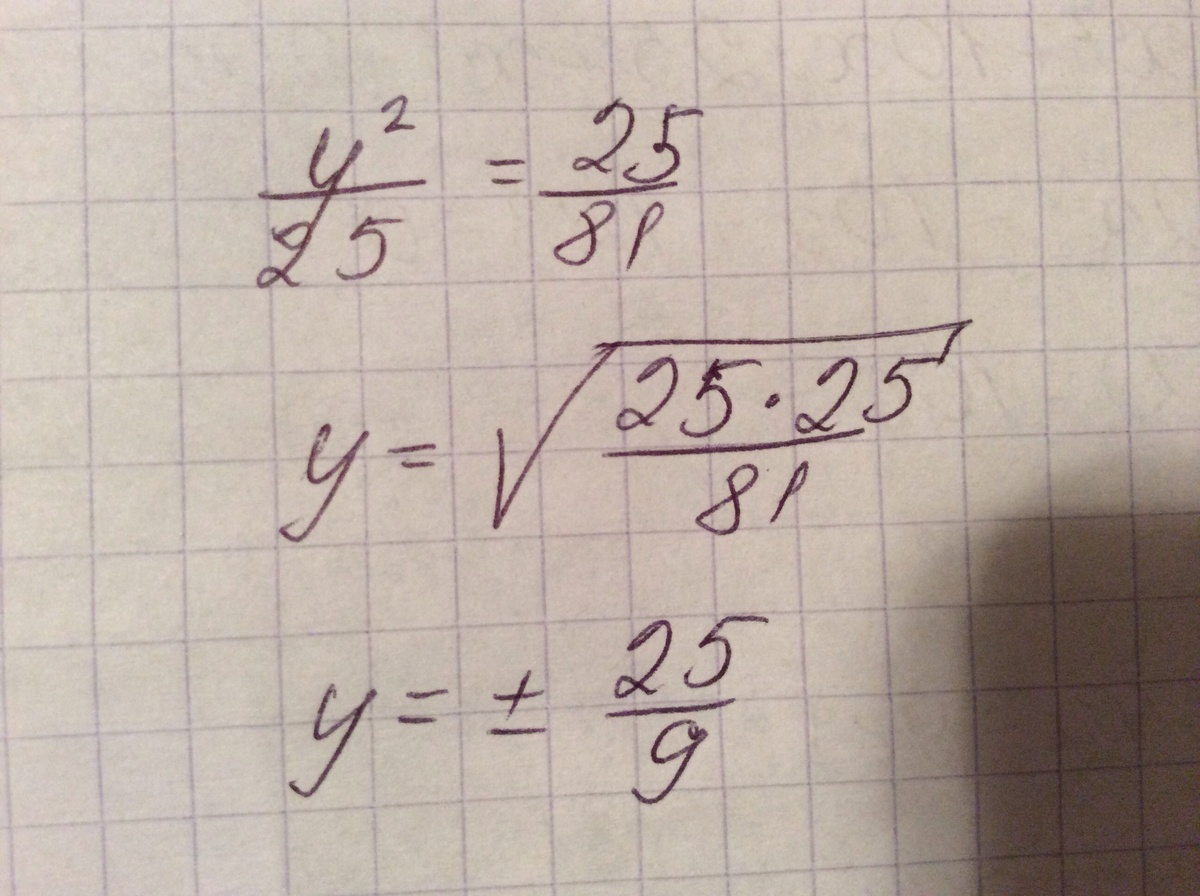 y²/25 = 25/81
y = √(25·25/81)
y = ± 25/9